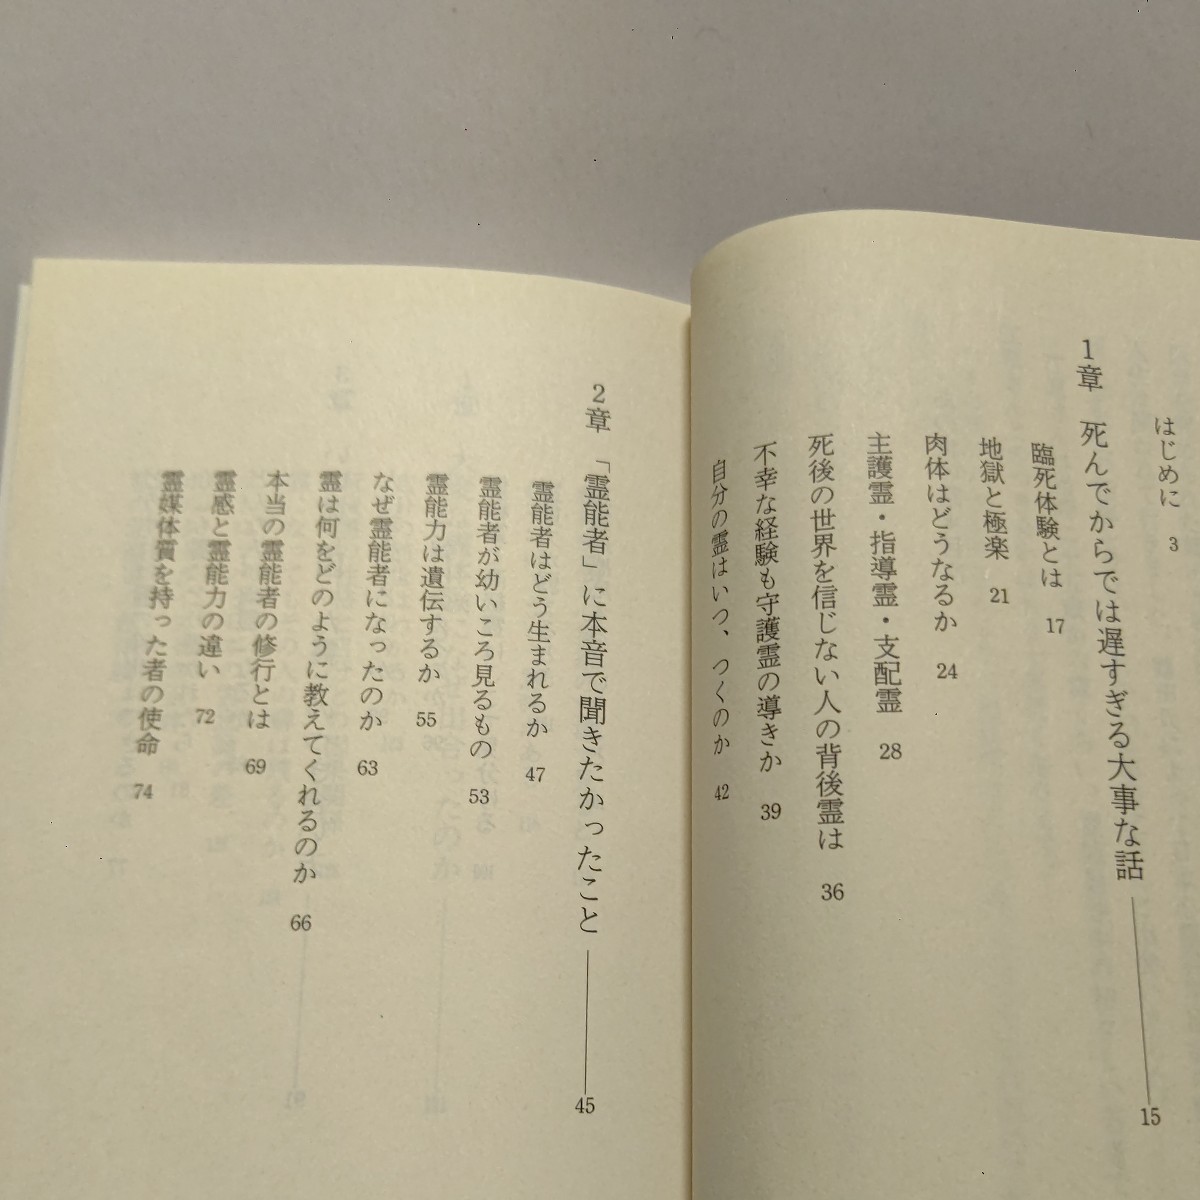 はじめに 3
1章 死んでからでは遅すぎる大事な話 15
臨死体験とは 17
地獄と極楽 21
肉体はどうなるか 24
主護霊・指導霊・支配霊 28
死後の世界を信じない人の背後霊は 36
不幸な経験も守護霊の導きか 39
自分の霊はいつ、つくのか 42
2章 「霊能者」に本音で聞きたかったこと 45
霊能者はどう生まれるか 47
霊能者が幼いころ見るもの 53
霊能力は遺伝するか 55
なぜ霊能者になったのか 63
霊は何をどのように教えてくれるのか 66
本当の霊能者の修行とは 69
霊感と霊能力の違い 72
霊媒体質を持った者の使命 74